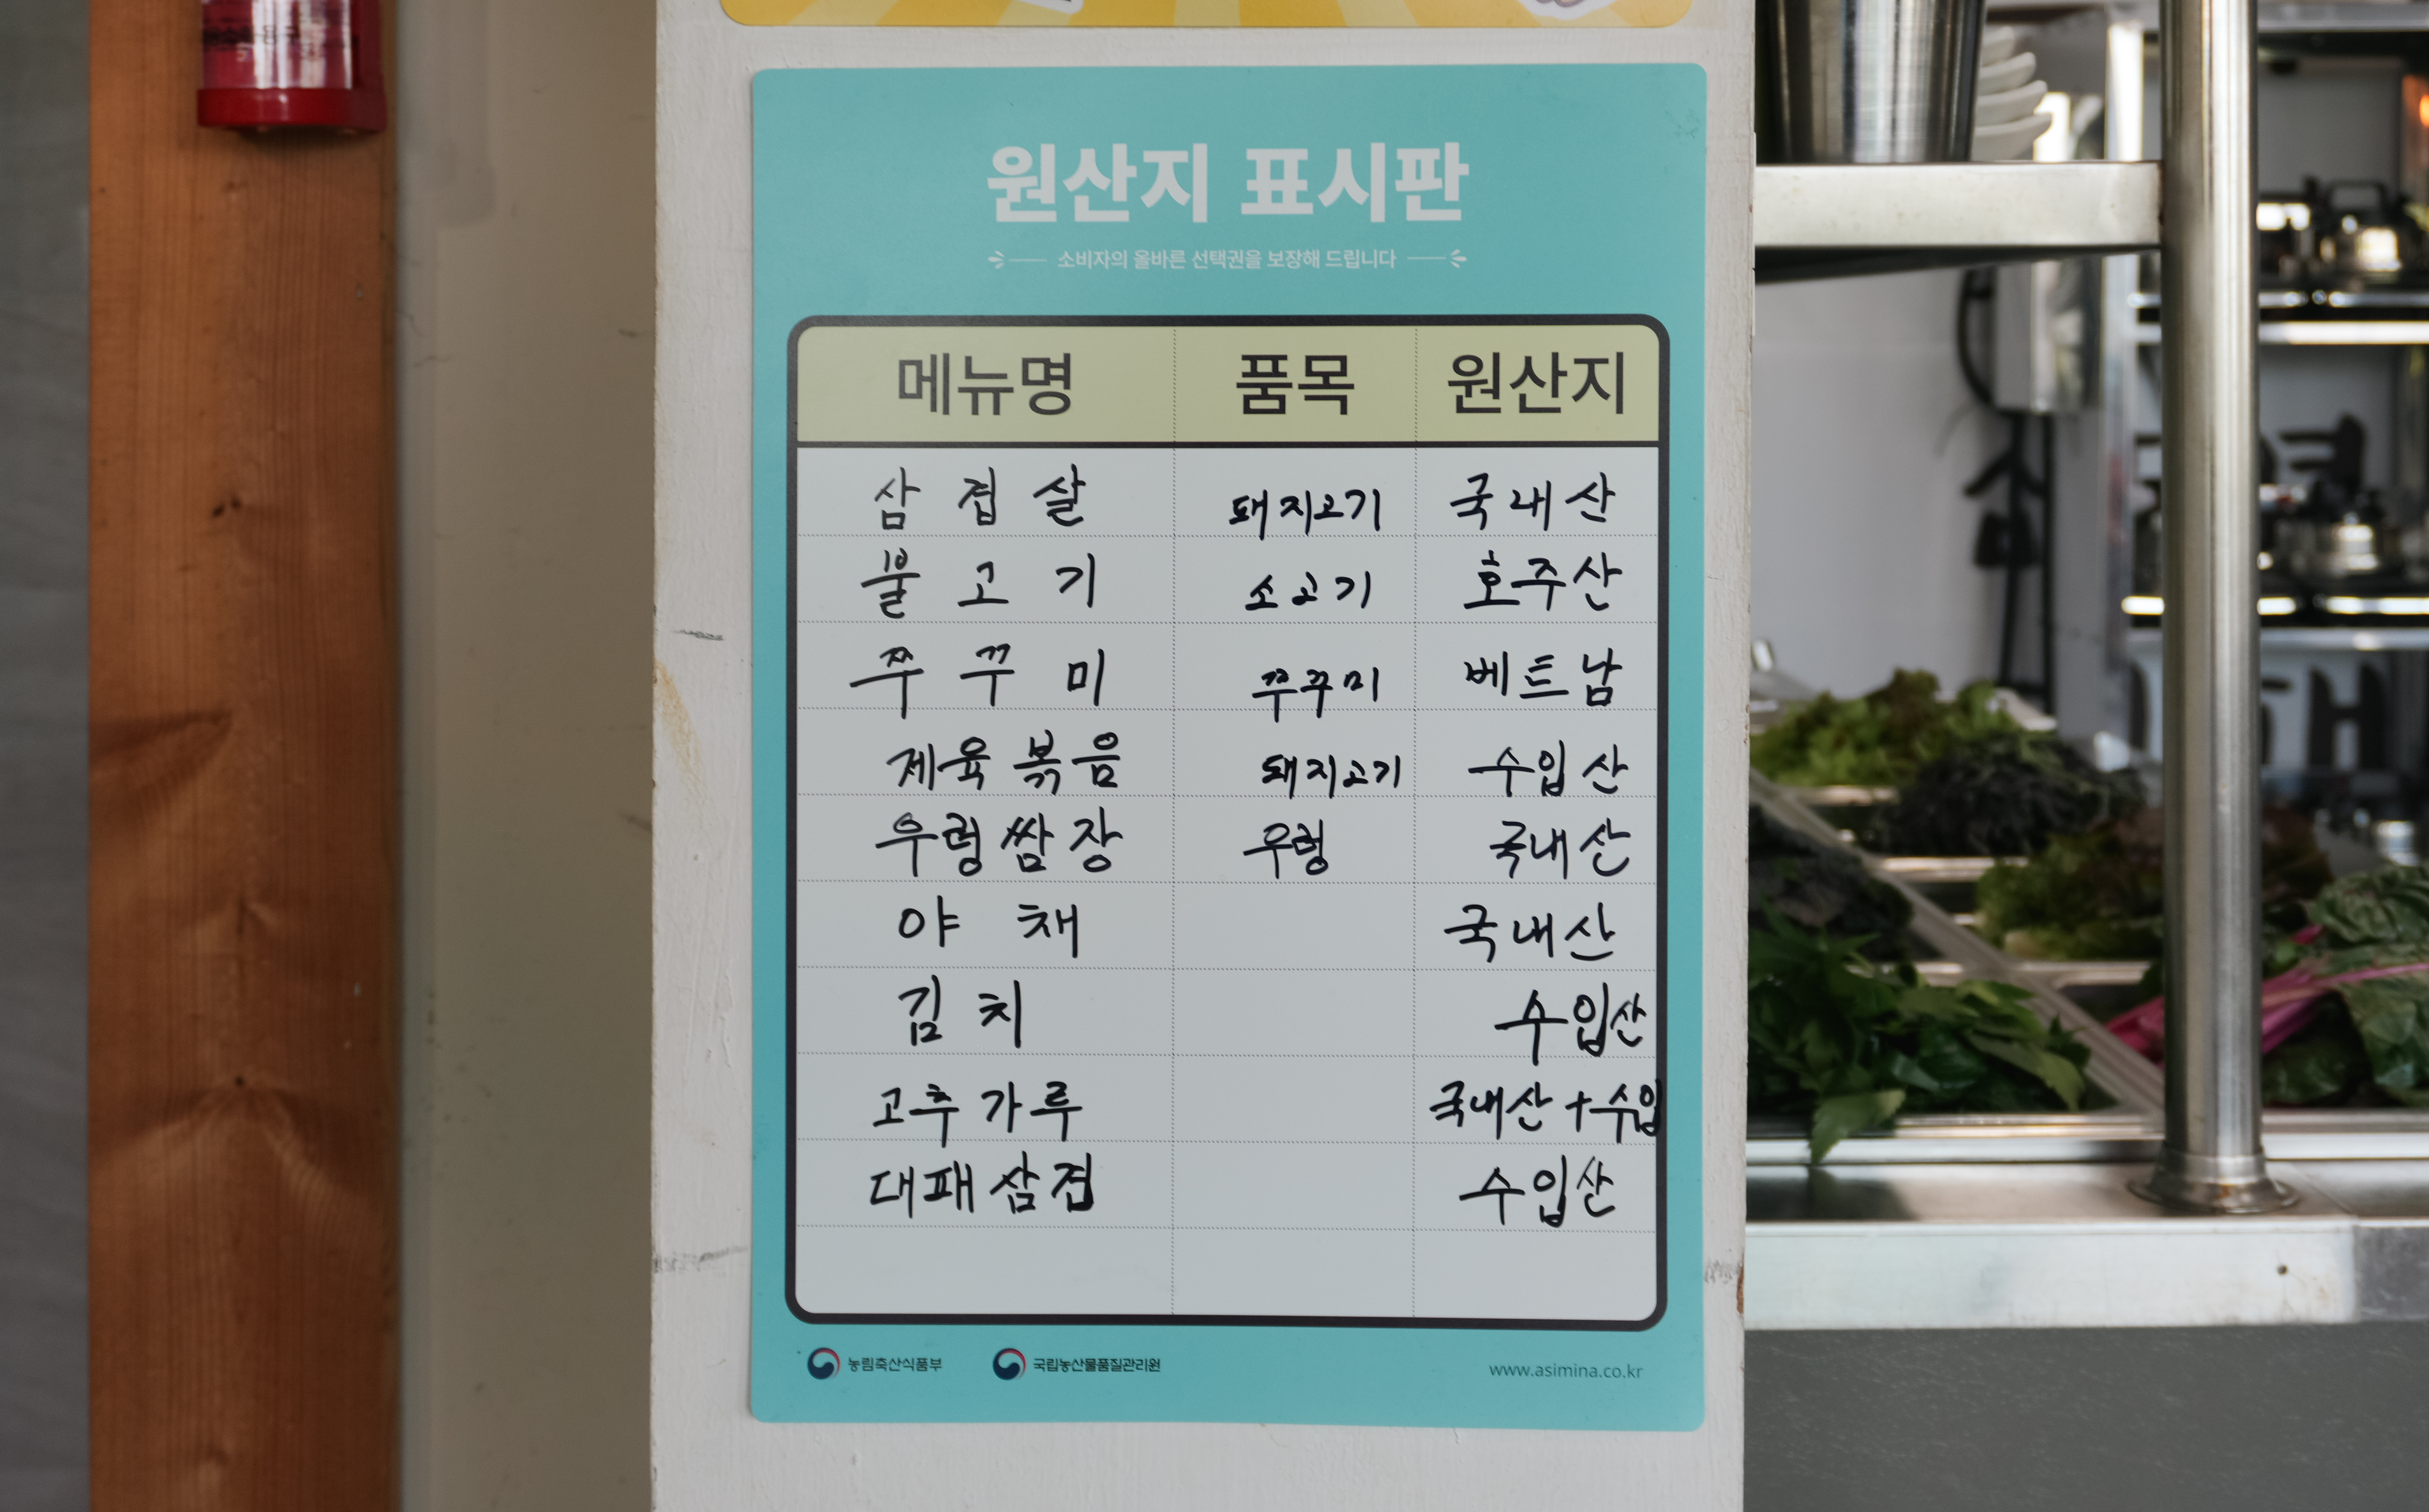 원산지 표시판
소비자의 올바른 선택권을 보장해 드립니다
메뉴명 품목 원산지
삼겹살 돼지고기 국내산
불고기 소고기 호주산
쭈꾸미 쭈꾸미 베트남
제육볶음 돼지고기 수입산
우렁쌈장 우렁 국내산
야채 국내산
김치 수입산
고추가루 국내산+수입
대패삼겹 수입산
농림축산식품부 국립농산물품질관리원 www.asimina.co.kr